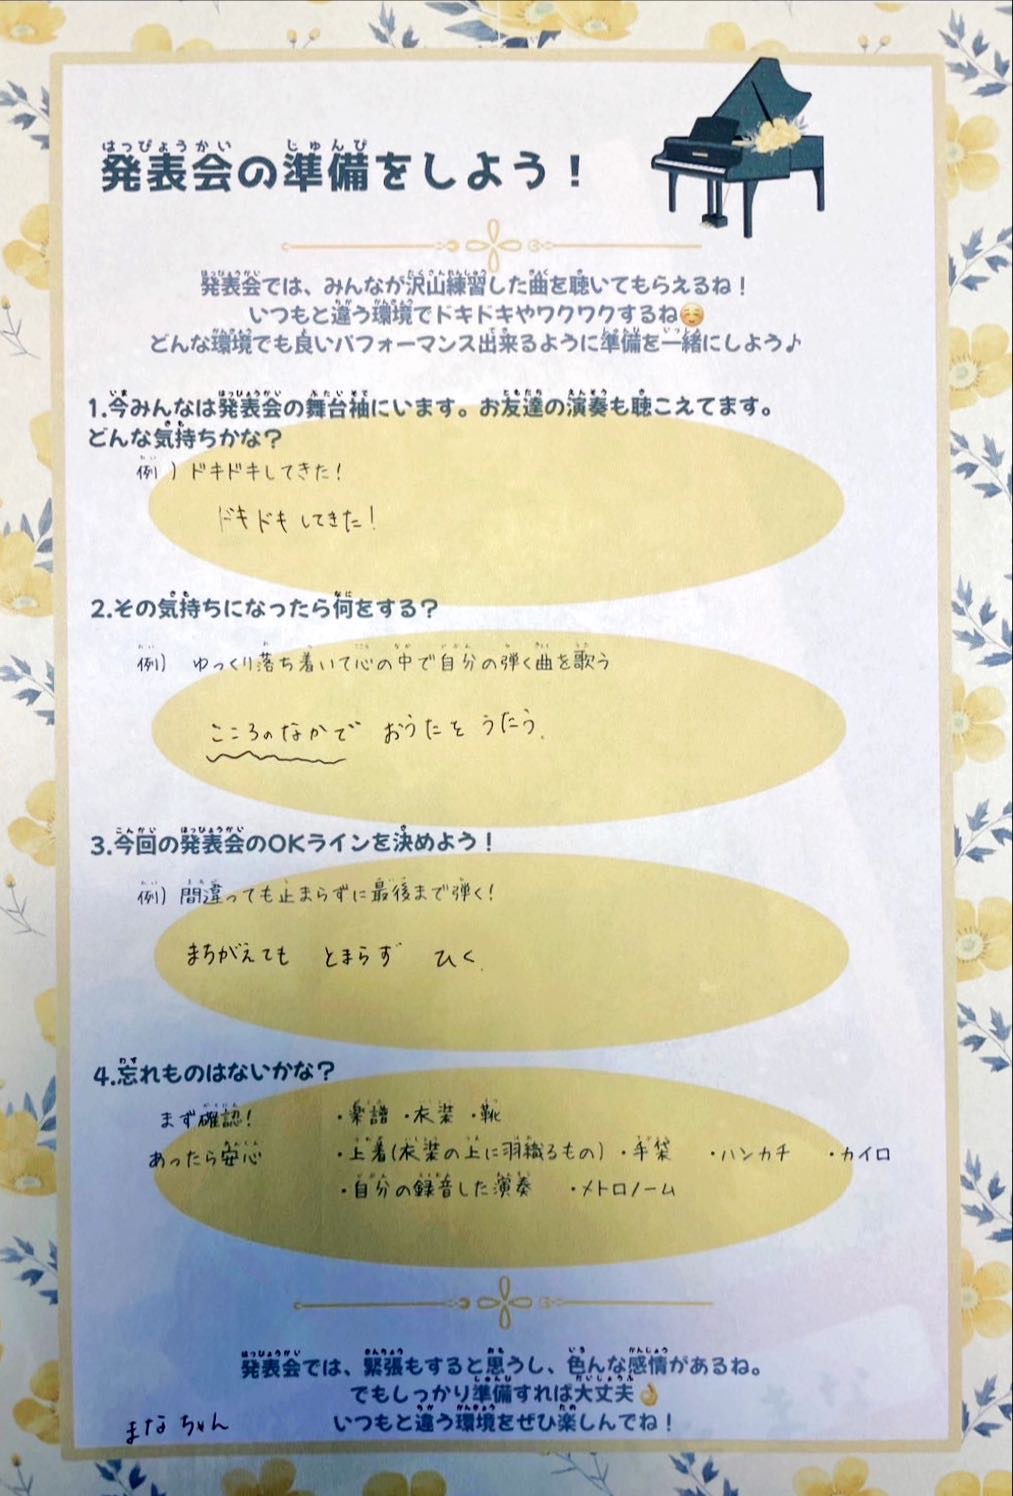 発表会の準備をしよう！
発表会では、みんなが沢山練習した曲を聴いてもらえるね！
いつもと違う環境でドキドキやワクワクするね☺️
どんな環境でも良いパフォーマンス出来るように準備を一緒にしよう♪
1.今みんなは発表会の舞台袖にいます。お友達の演奏も聴こえてます。
どんな気持ちかな？
例）ドキドキしてきた！
ドキドキしてきた！
2.その気持ちになったら何をする？
例）ゆっくり落ち着いて心の中で自分の弾く曲を歌う
こころのなかで おうたを うたう.
3.今回の発表会のOKラインを決めよう！
例）間違っても止まらずに最後まで弾く！
まちがえても とまらず ひく.
4.忘れものはないかな？
まず確認！ ・楽譜 ・衣装 ・靴
あったら安心 ・上着(衣装の上に羽織るもの) ・手袋 ・ハンカチ ・カイロ
・自分の録音した演奏 ・メトロノーム
発表会では、緊張もすると思うし、色んな感情があるね。
でもしっかり準備すれば大丈夫👌
いつもと違う環境をぜひ楽しんでね！
まなちゃん